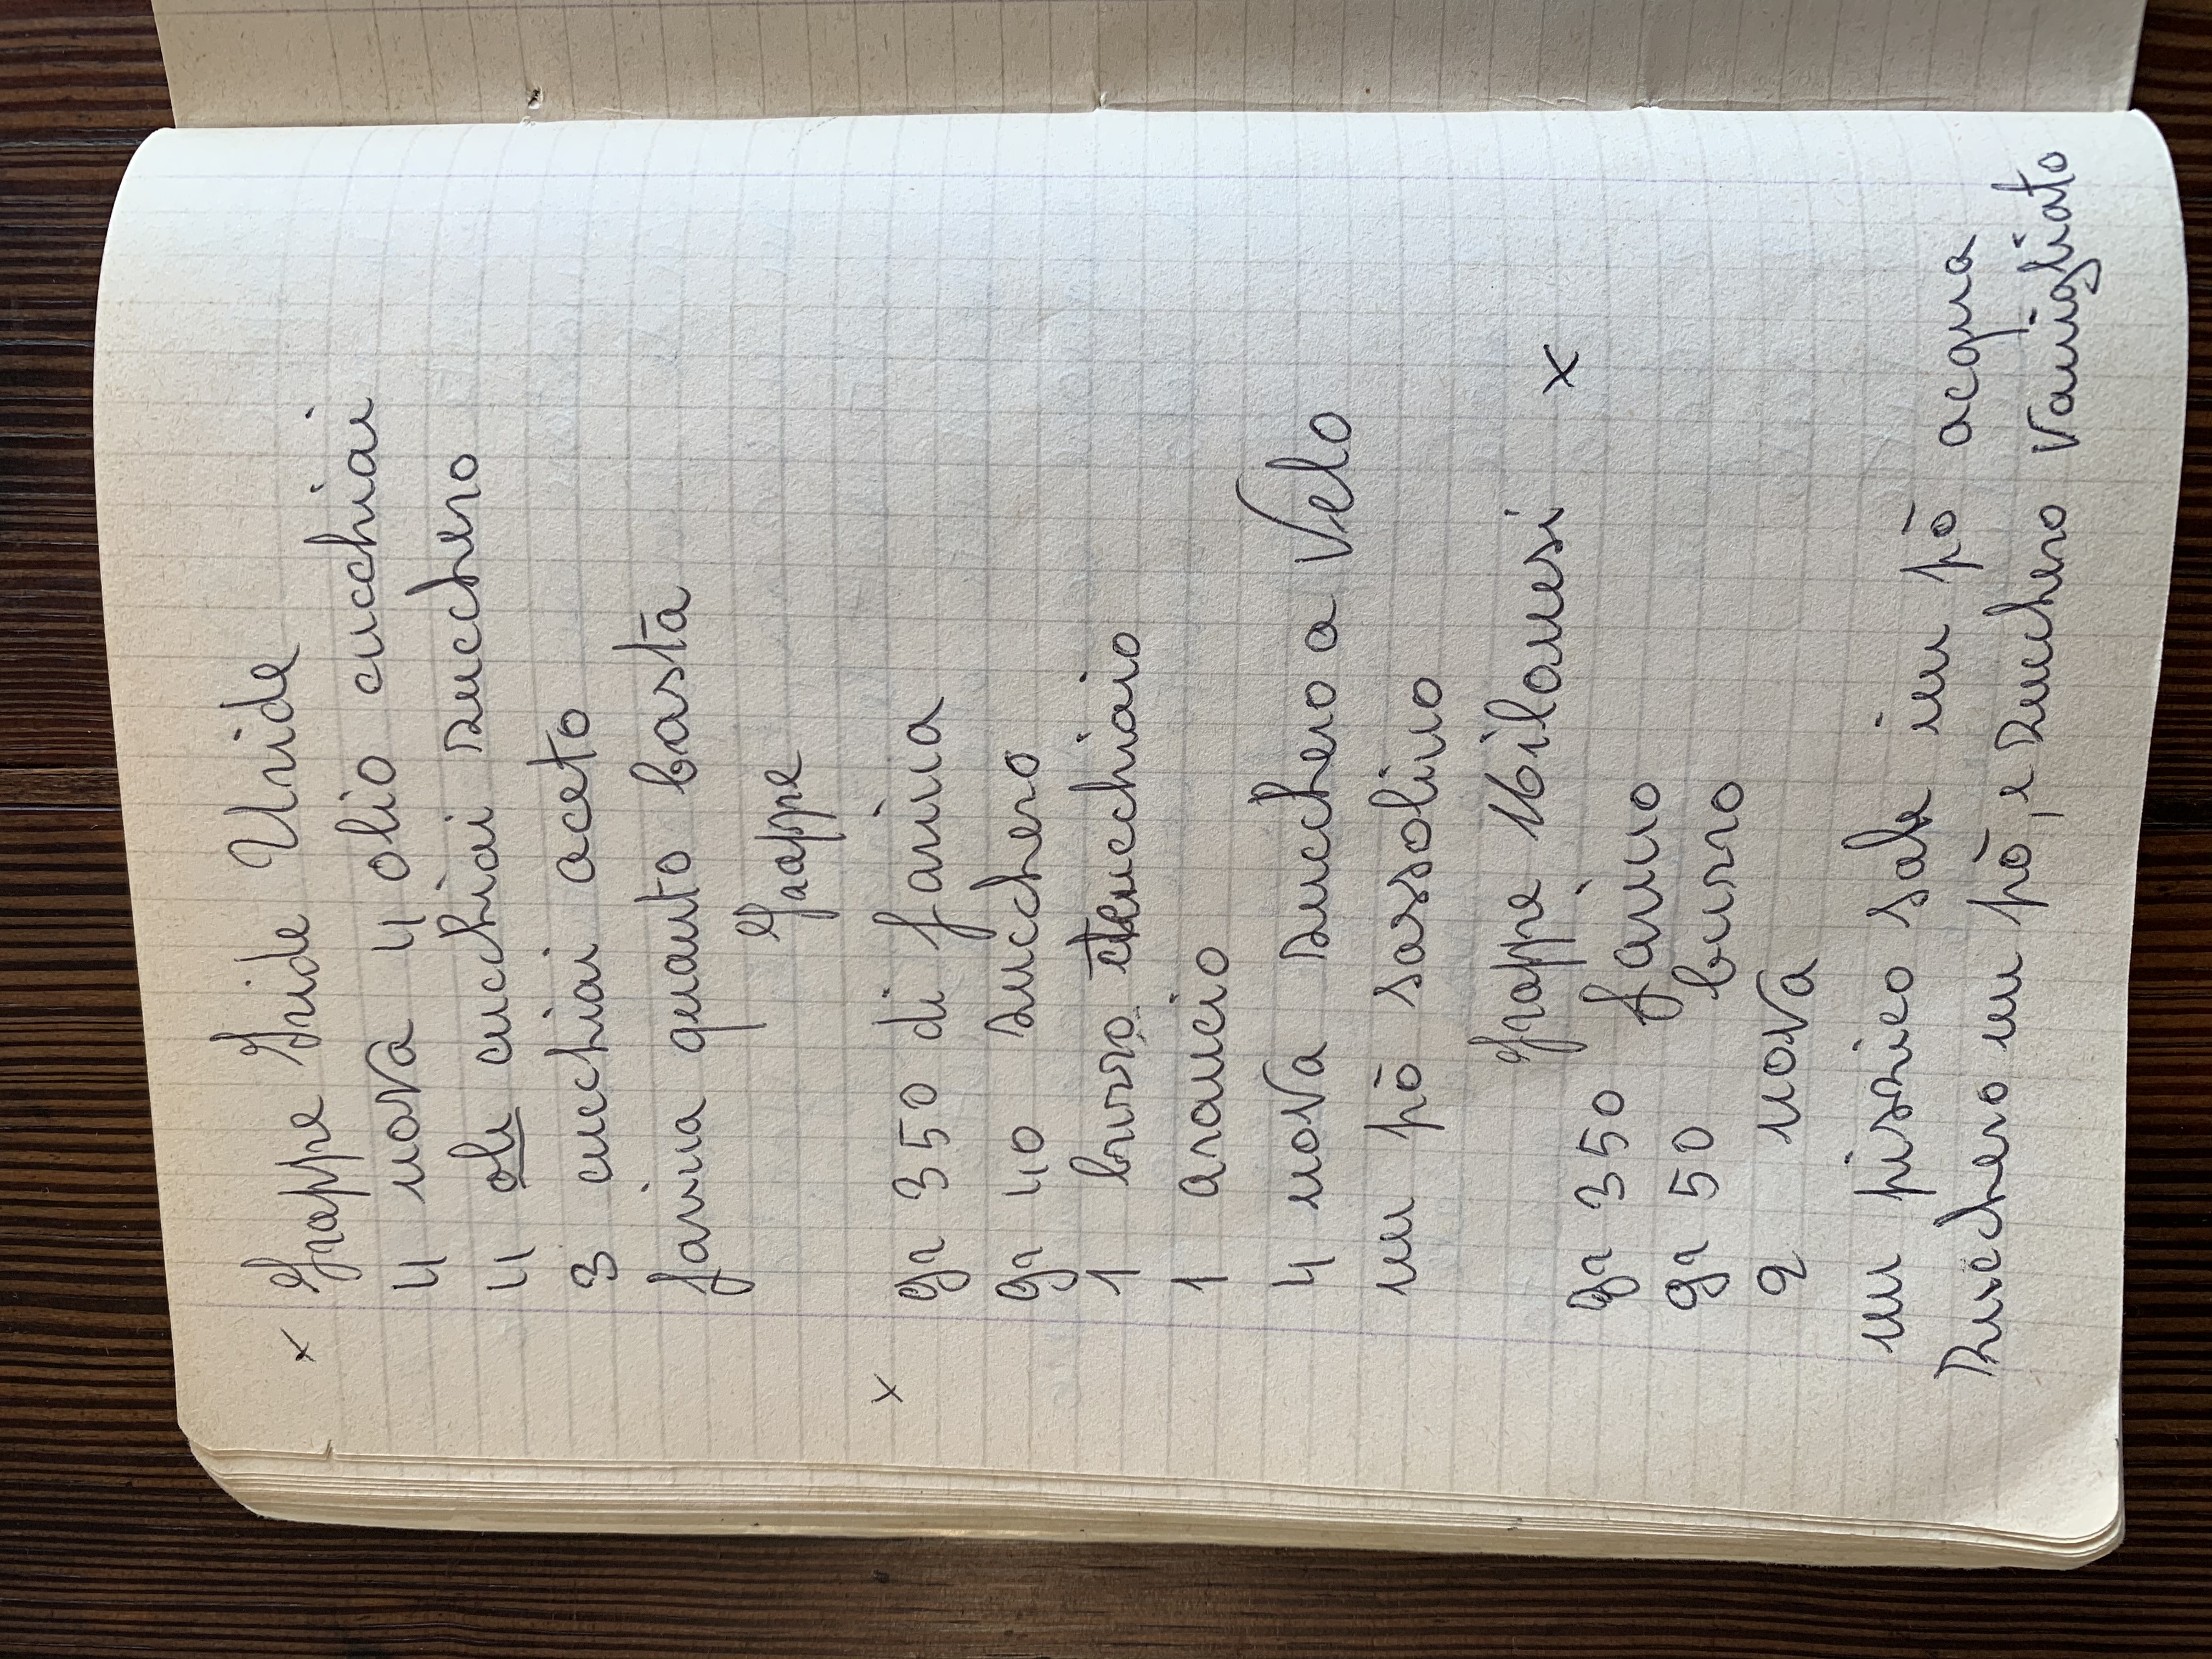 x Frappe Iride Uride
4 uova 4 olio cucchiai
4 oli cucchiai zucchero
3 cucchiai aceto
farina quanto basta
Frappe
x gr 350 di farina
gr 40 zucchero
1 burro cucchiaio
1 arancio
4 uova zucchero a Velo
un pò sassolino
frappe Milanesi x
gr 350 farina
gr 50 burro
2 uova
un piszico sale un pò acqua
Zucchero un pò, e zucchero Vanigliato